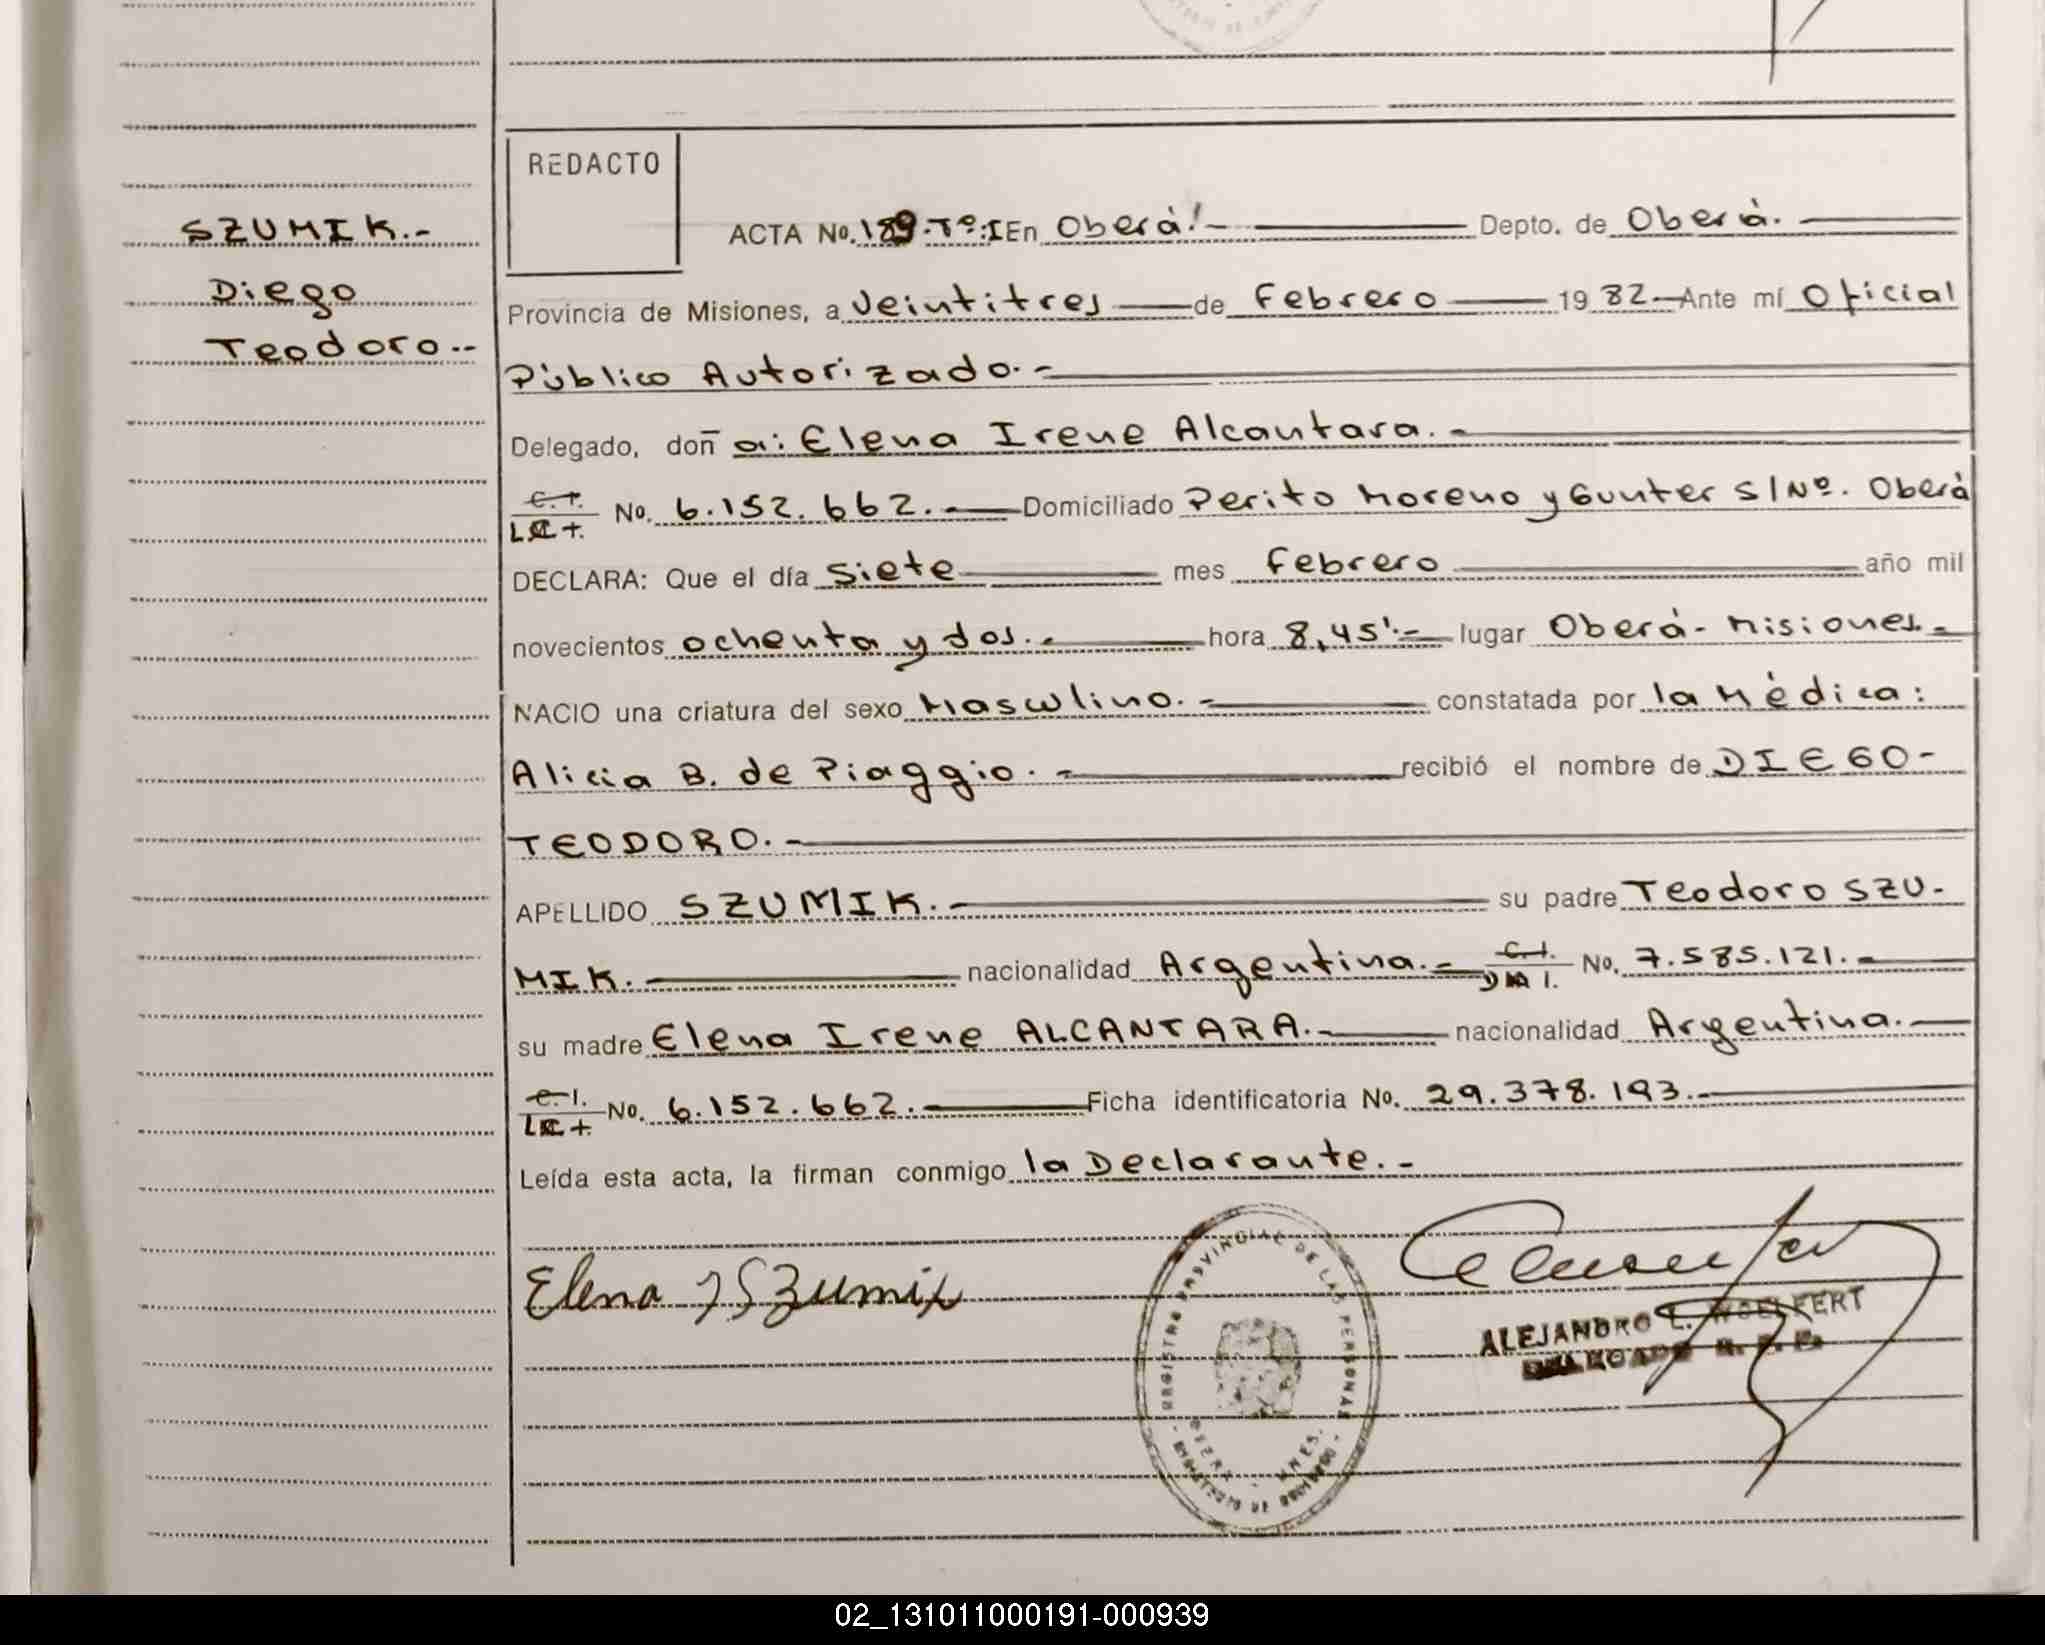 REDACTO
SZUMIK.-
Diego
Teodoro.-
ACTA No. 189.Tº:I En Oberá!- Depto. de Oberá.
Provincia de Misiones, a Veintitres de Febrero 1982 Ante mí Oficial
Público Autorizado.-
Delegado, doñ a: Elena Irene Alcantara.-
C.I. No. 6.152.662. Domiciliado Perito Moreno y Gunter S/Nº. Oberá
DECLARA: Que el día siete mes Febrero año mil
novecientos ochenta y dos.- hora 8,45'.- lugar Oberá-Misiones.-
NACIO una criatura del sexo Masculino.- constatada por la Médica:
Alicia B. de Piaggio.- recibió el nombre de DIEGO-
TEODORO.-
APELLIDO SZUMIK.- su padre Teodoro SZU-
MIK. nacionalidad Argentina.- C.I. No. 7.585.121.-
su madre Elena Irene ALCANTARA.- nacionalidad Argentina.-
C.I. No. 6.152.662. Ficha identificatoria No. 29.378.193.-
Leída esta acta, la firman conmigo la Declarante.-
Elena I Szumik
REGISTRO PROVINCIAL DE LAS PERSONAS
ALEJANDRO L. WOELFERT
DELEGADO R. P. P.
02_131011000191-000939